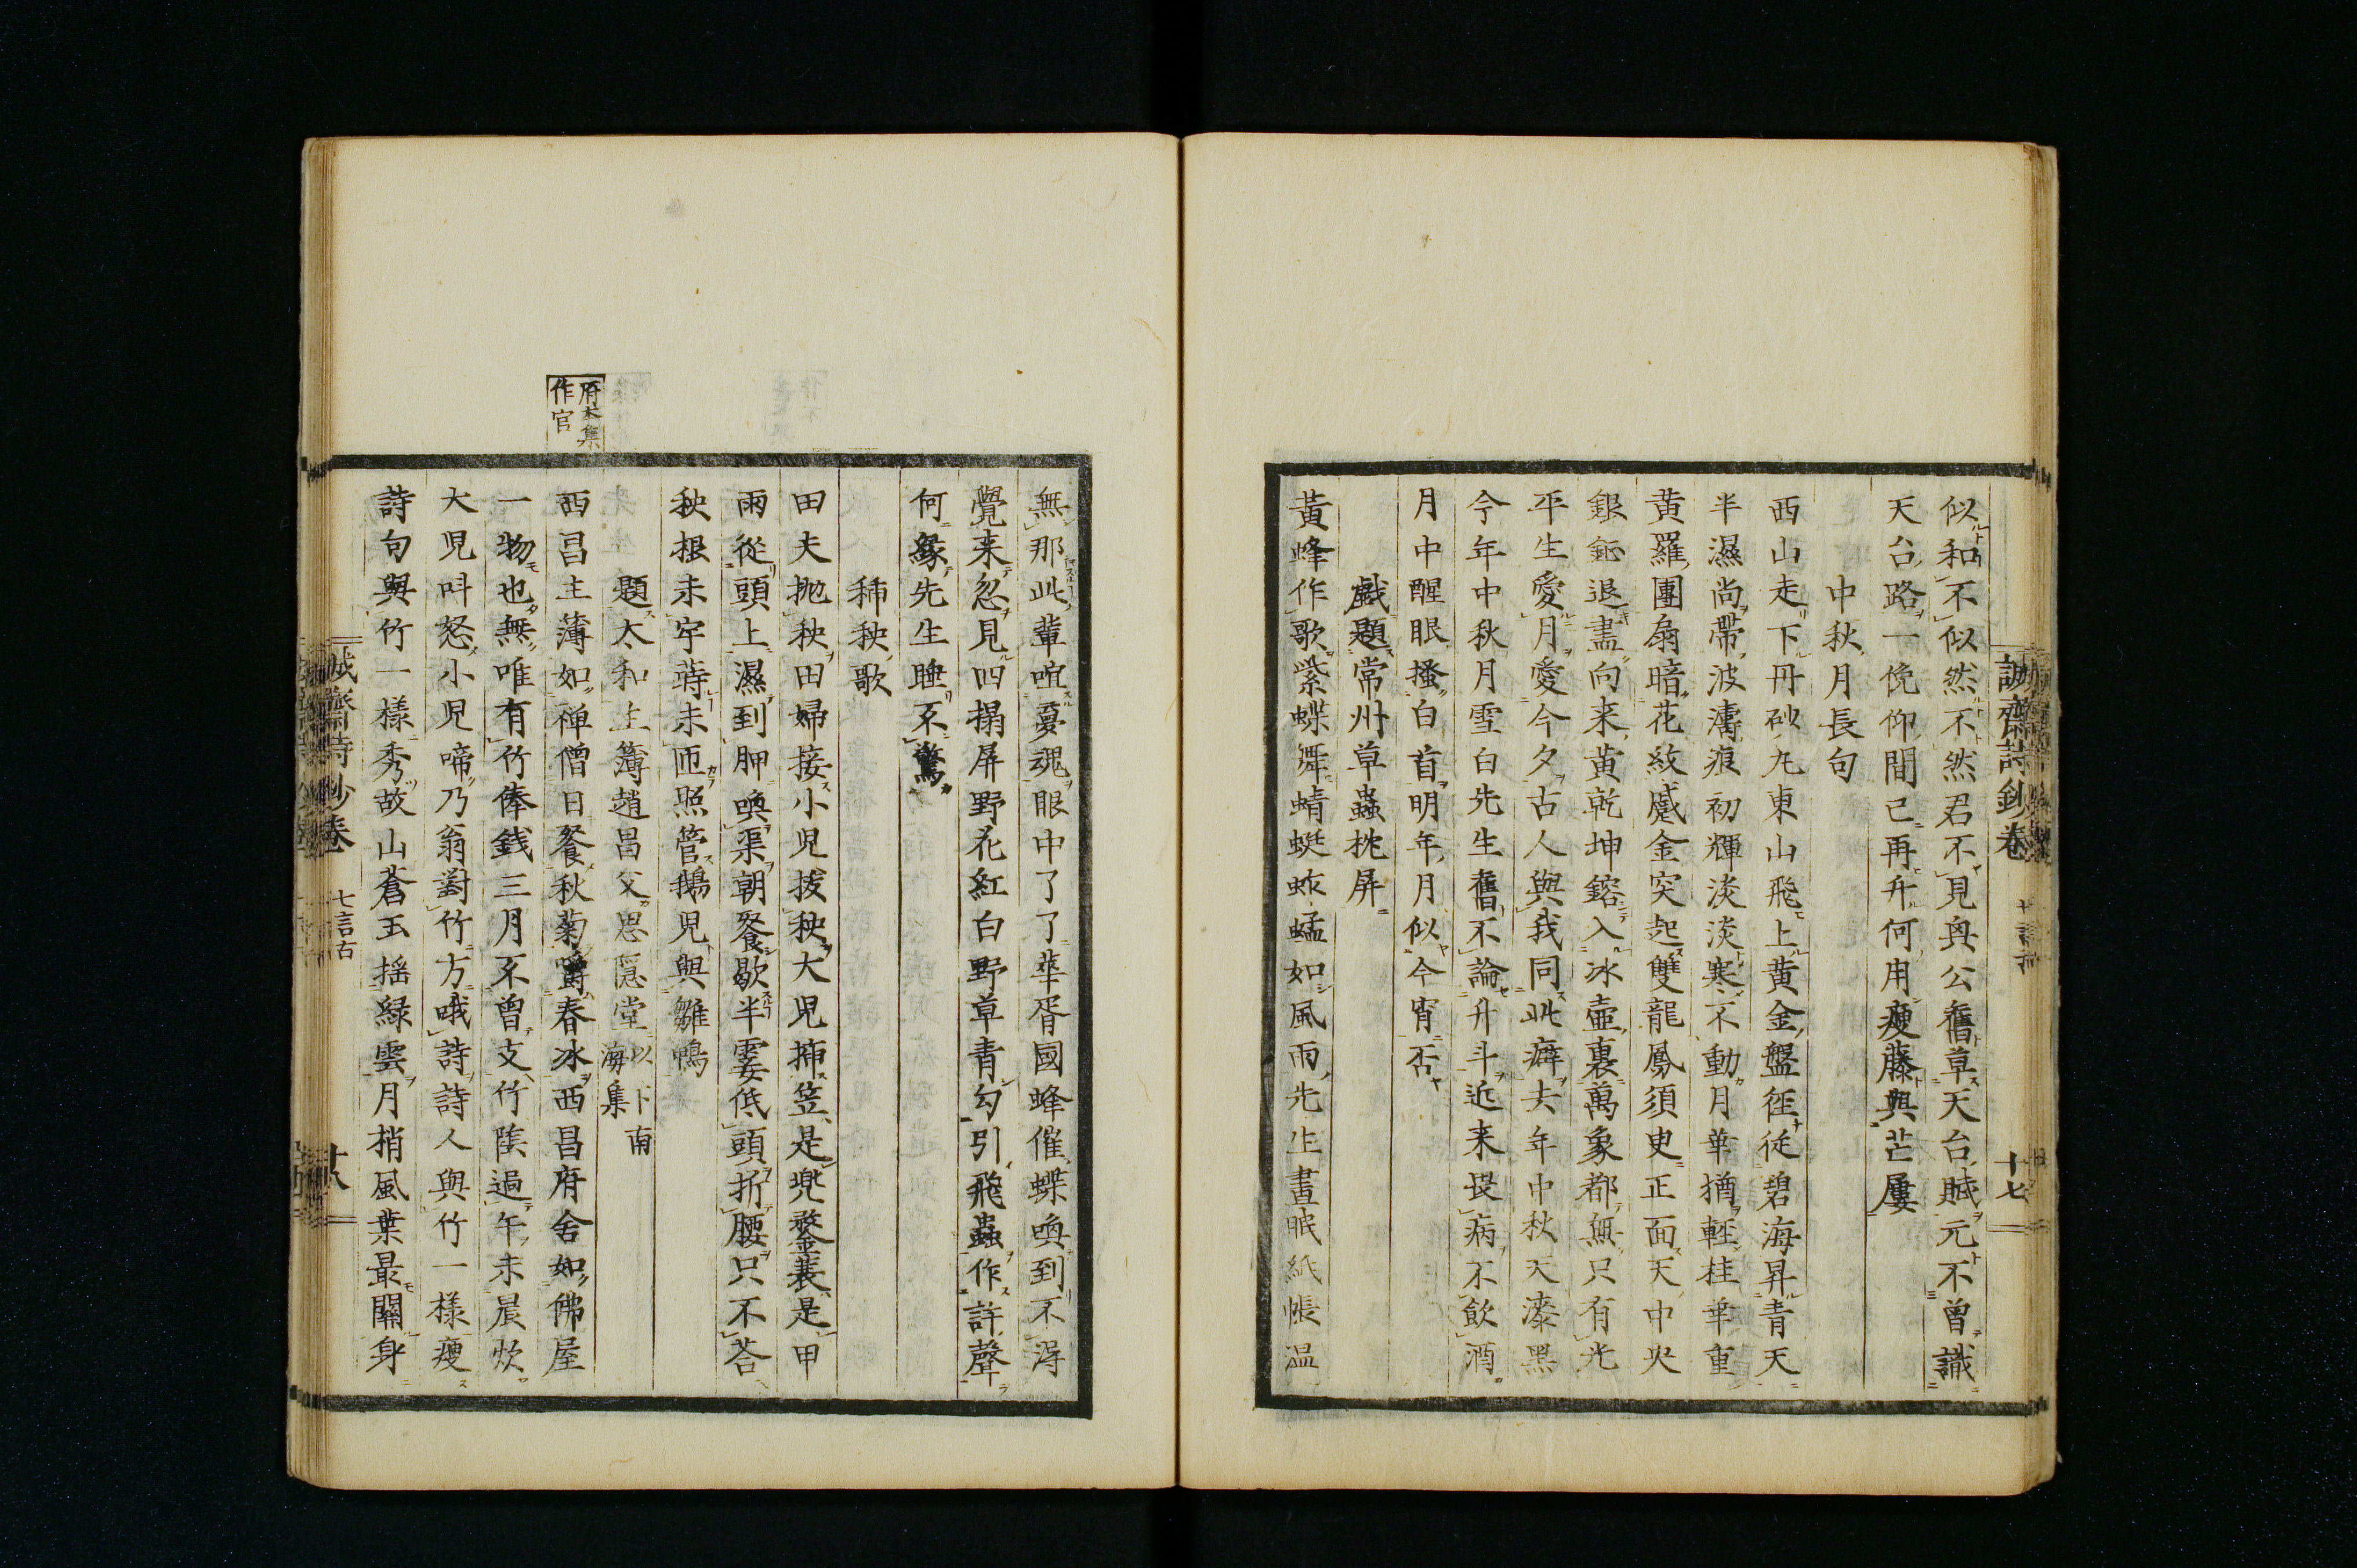 誠齋詩鈔卷 七言古 十七
似和不似然不然君不見興公舊草天台賦元不曾識
天台路一俛仰間已再升何用瘦藤與芒屨
中秋月長句
西山走下丹砂丸東山飛上黄金盤徑從碧海昇青天
半濕尚帶波濤痕初輝淡淡寒不動月華猶輕桂華重
黄羅團扇暗花紋蹙金突起雙龍鳳須臾正面天中央
銀鉦退盡向来黄乾坤鎔入冰壷裏萬象都無只有光
平生愛月愛今夕古人與我同此癖去年中秋天漆黒
今年中秋月雪白先生舊不論升斗近来畏病不飲酒
月中醒眼搔白首明年月似今宵否
戯題常州草蟲枕屏
黄蜂作歌紫蝶舞蜻蜓蚱蜢如風雨先生晝眠紙帳温
無那此輩喧憂魂眼中了了華胥國蜂催蝶喚到不得
覺来忽見四搨屏野花紅白野草青勾引飛蟲作許聲
何緣先生睡不驚
挿秧歌
田夫抛秧田婦接小児拔秧大児挿笠是兜鍪蓑是甲
雨從頭上濕到胛喚渠朝餐歇半霎低頭折腰只不荅
秧根未牢蒔未匝照管鵝児與雛鴨
題太和主簿趙昌父思隠堂 以下南海集
西昌主薄如禅僧日餐秋菊嚼春冰西昌府舍如佛屋
府本集作官
一物也無唯有竹俸銭三月不曾支竹陰過午未晨炊
大児叫怒小児啼乃翁對竹方哦詩詩人與竹一様瘦
詩句與竹一様秀故山蒼玉揺緑雲月梢風葉最關身
誠齋詩鈔卷 七言古 十八